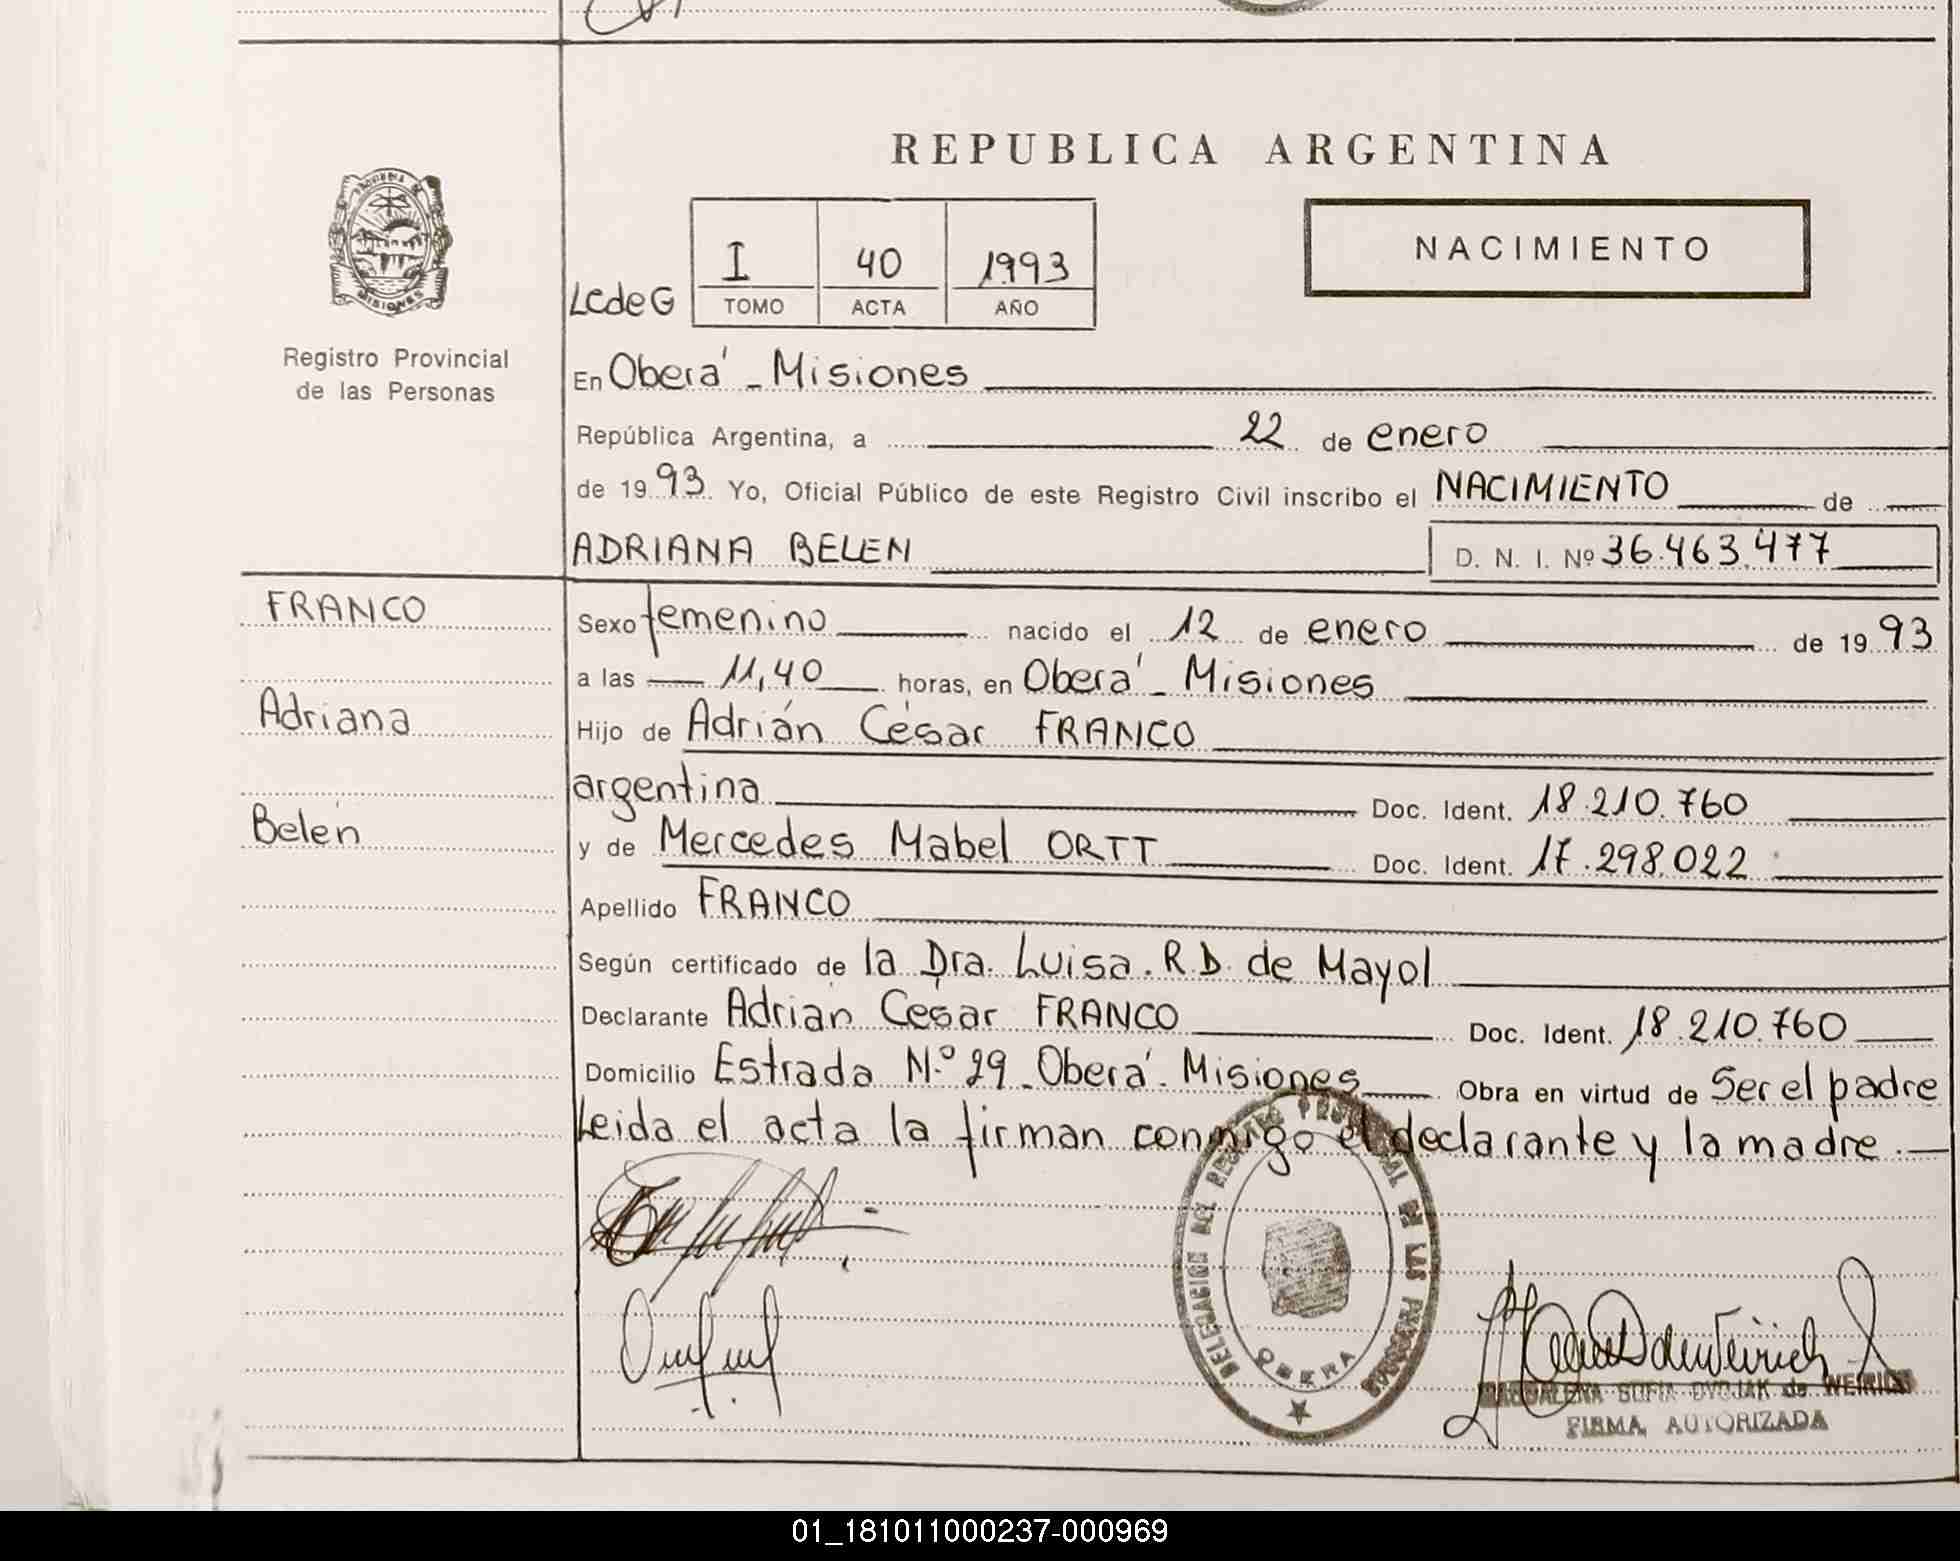 REPUBLICA ARGENTINA
PROVINCIA DE
MISIONES
Registro Provincial
de las Personas
NACIMIENTO
LcdeG
I 40 1993
TOMO ACTA AÑO
En Oberá - Misiones
República Argentina, a 22 de enero
de 1993 Yo, Oficial Público de este Registro Civil inscribo el NACIMIENTO de
ADRIANA BELEN D. N. I. Nº 36.463.477
FRANCO
Adriana
Belén
Sexo femenino nacido el 12 de enero de 1993
a las 11,40 horas, en Oberá - Misiones
Hijo de Adrián César FRANCO
argentina Doc. Ident. 18.210.760
y de Mercedes Mabel ORTT Doc. Ident. 17.298.022
Apellido FRANCO
Según certificado de la Dra. Luisa. R.D. de Mayol
Declarante Adrián César FRANCO Doc. Ident. 18.210.760
Domicilio Estrada N.º 29 - Oberá - Misiones Obra en virtud de Ser el padre
Leida el acta la firman conmigo el declarante y la madre.
DELEGACION DEL REGISTRO PROVINCIAL DE LAS PERSONAS
OBERA
MAGDALENA SOFIA DVOJAK de WEIRICH
FIRMA AUTORIZADA
01_181011000237-000969